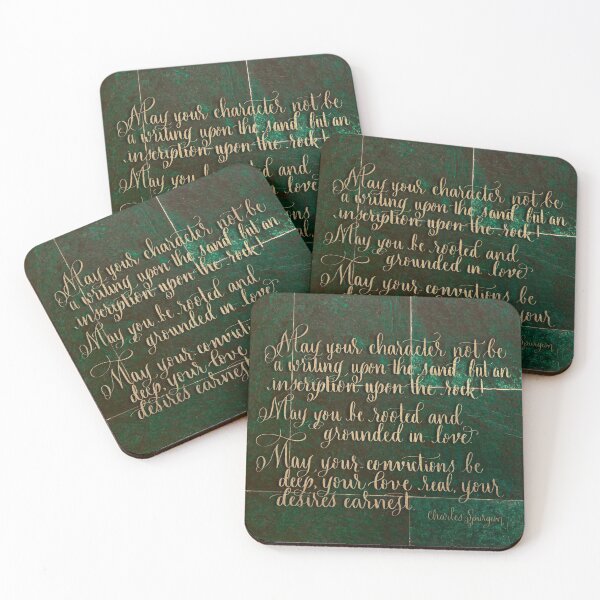 May your character not be
a writing upon the sand, but an
inscription upon the rock!
May you be rooted and
in love
ns
real,
May your character not be
a writing upon the sand, but an
inscription upon the rock!
May you be rooted and
grounded in love
May your convictions be
your
Spurgeon
May your character not be
a writing upon the sand, but an
inscription upon the rock!
May you be rooted and
grounded in love
May your convicti
deep, your love
desires earnest
May your character not be
a writing upon the sand, but an
inscription upon the rock!
May you be rooted and
grounded in love
May your convictions be
deep, your love real, your
desires earnest
Charles Spurgeon